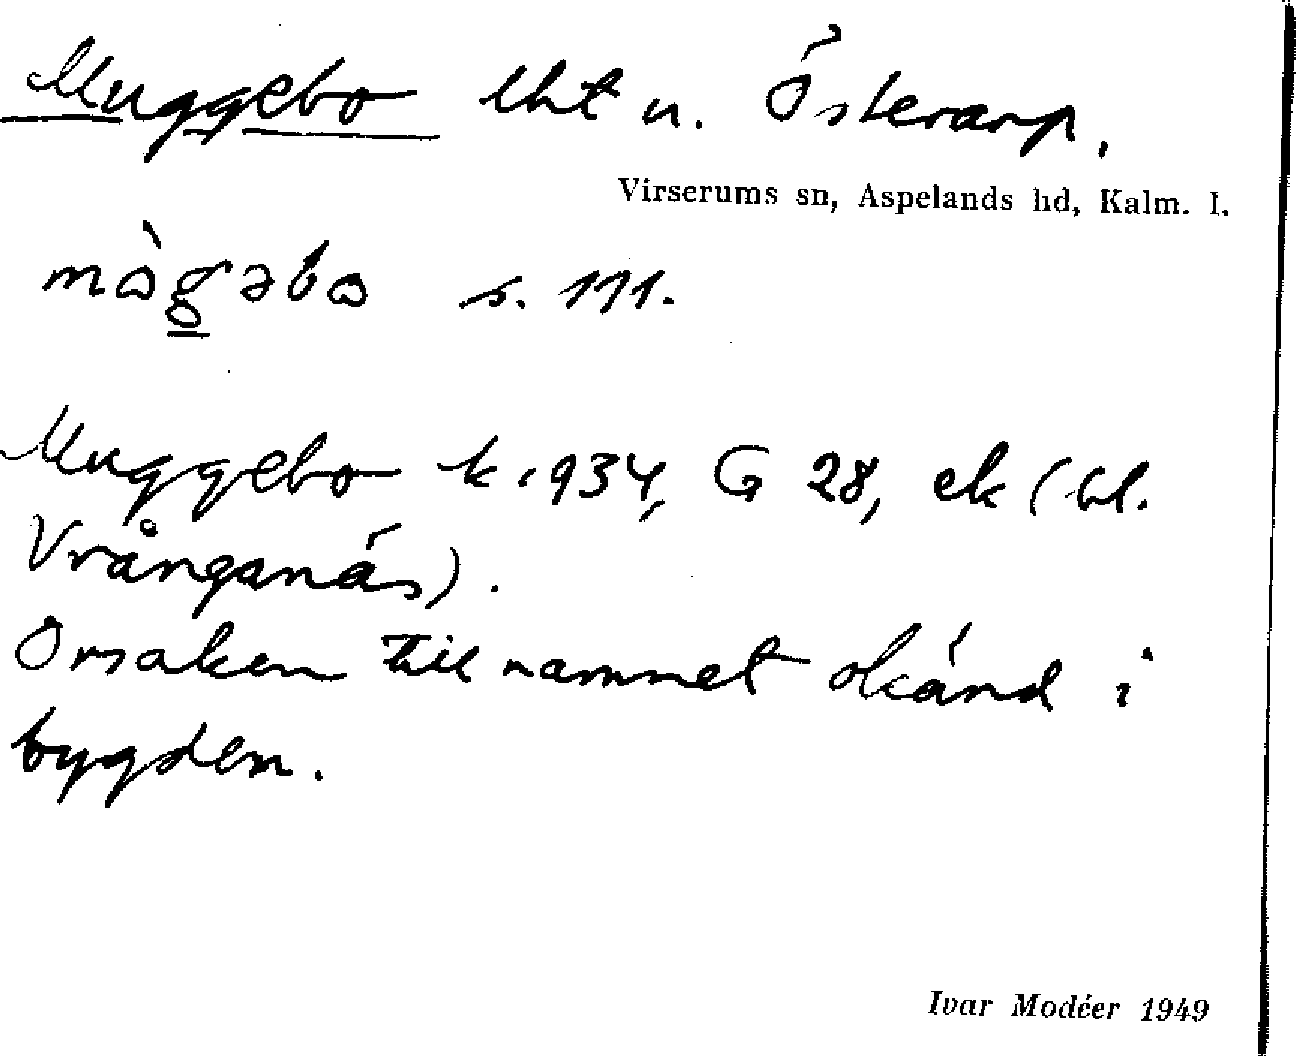 Muggebo lht u. Österarp.
Virserums sn, Aspelands hd, Kalm. l.
mògəbo s. 111.
Muggebo k. 1934, G 28, ek (bl.
Vrånganäs).
Orsaken till namnet okänd i
bygden.
Ivar Modéer 1949